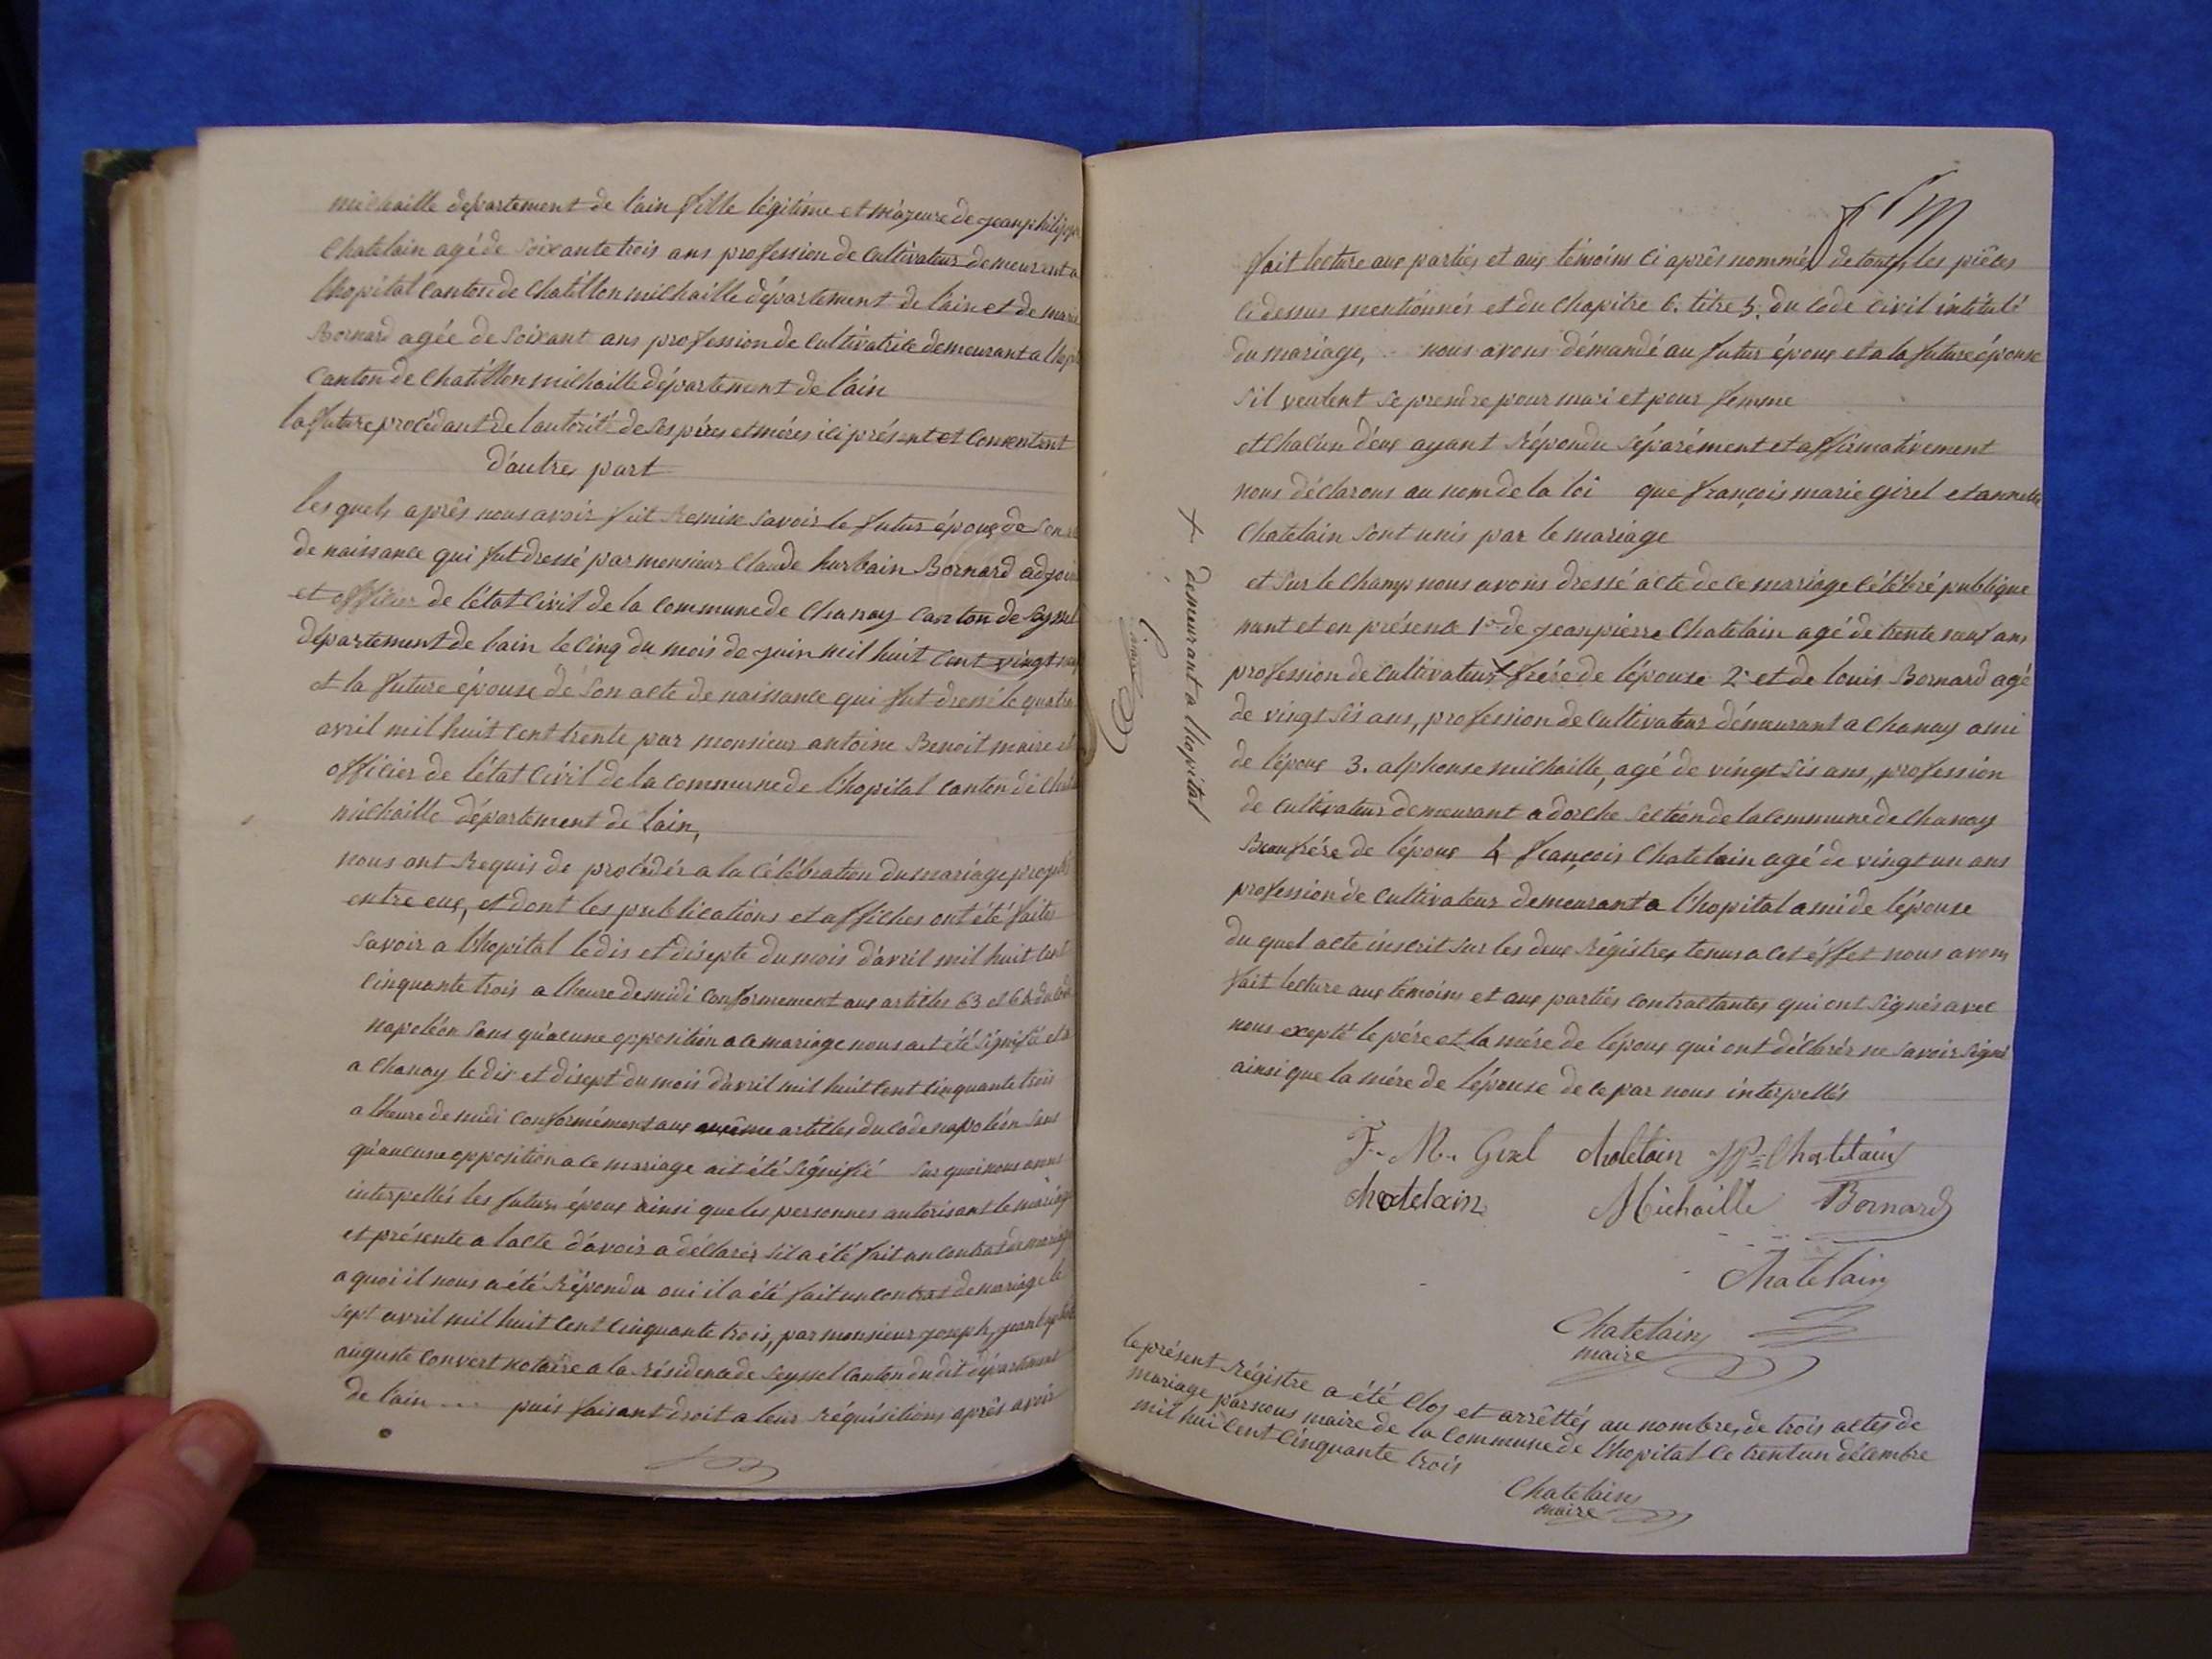 michaille département de l'ain fille légitime et majeure de jean philippe
Chatelain agé de Soixante trois ans profession de Cultivateur demeurant a
lhopital Canton de Chatillon michaille département de l'ain et de marie
Bornard agée de Soixant ans profession de Cultivatrice demeurant a lhopit
Canton de Chatillon michaille département de l'ain
la future procédant de lautorité de Ses pères et mères ici présent et Consentent
d'autres part
les quels après nous avoir fait Remise Savoir le futur époux de Son
de naissance qui fut dressé par monsieur Claude hurbain Bornard adjoin
et officier de l'état Civil de la Commune de Chanay Canton de Seyssel
département de lain le Cinq du mois de juin mil huit Cent vingt
et la future épouse de Son acte de naissance qui fut dressé le quatre
avril mil huit Cent trente par monsieur antoine Benoit maire et
officier de l'état Civil de la Commune de lhopital Canton de Chat
michaille département de lain,
nous ont Requis de procéder a la Célébration du mariage projeté
entre eux, et dont les publications et affiches ont été faites
Savoir a lhopital le dix et disepte du mois d'avril mil huit Cent
Cinquante trois a lheure de midi Conformement aux articles 63 et 64 du Code
napoléon Sans quaucune opposition a ce mariage nous ait été Signifié et
a Chanay le dix et disept du mois d'avril mil huit Cent Cinquante trois
a lheure de midi Conformément aux même articles du Code napoléon Sans
qu'aucune opposition a ce mariage ait été Signifié Sur quoi nous avons
interpellés les futurs époux ainsi que les personnes autorisant le mariage
et présente a lacte d'avoir a déclarer S'il a été fait un Contrat de mariage
a quoi il nous a été Répondu oui il a été fait un Contrat de mariage le
Sept avril mil huit Cent Cinquante trois, par monsieur Joseph, jean
auguste Convert notaire a la Résidence de Seyssel Canton du dit département
de lain ... puis faisant droit a leur Réquisitions après avoir
fait lecture aux parties et aux témoins Ci après nommés de toutes les pièces
Ci dessus mentionnés et du Chapitre 6. titre 5. du Code Civil intitulé
du mariage, nous avons démandé au futur époux et a la future épouse
S'il veulent Se prendre pour mari et pour femme
et Chacun d'eux ayant Répondu Séparément et affirmativement
nous déclarons au nom de la loi que françois marie girel et annette
Chatelain Sont unis par le mariage
et Sur le Champ nous avons dressé acte de Ce mariage Célébré publique
ment et en présence 1° de jean pierre Chatelain agé de trente neuf ans
profession de Cultivateur + frére de lépouse 2° et de louis Bornard agé
de vingt Sis ans, profession de Cultivateur démeurant a Chanay ami
de lépoux 3. alphonse michaille, agé de vingt Sis ans, profession
de Cultivateur demeurant a dorche Section de la Commune de Chanay
Beau frére de lépoux 4 françois Chatelain agé de vingt un ans
profession de Cultivateur demeurant a lhopital ami de lépouse
du quel acte inscrit Sur les deux Régistres tenus a Cet éffet nous avons
fait lecture aux temoins et aux parties Contractantes qui ont Signés avec
nous excepté le pére et la mére de lépoux qui ont déclarés ne Savoir Signé
ainsi que la mére de lépouse de Ce par nous interpellés
+ demeurant a lhopital
F. M. Girel Chatelain JP= Chatelain
Chatelain Michaille Bornard
Chatelain
Chatelain
maire
le présent Régistre a été Clos et arrêttés au nombre de trois actes de
mariage par nous maire de la Commune de lhopital le trent un décembre
mil hui Cent Cinquante trois
Chatelain
maire